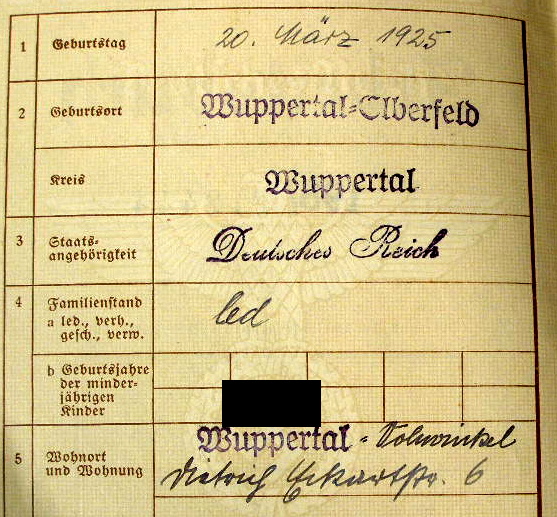 1 Geburtstag 20. März 1925
2 Geburtsort Wuppertal-Elberfeld
Kreis Wuppertal
3 Staats-
angehörigkeit Deutsches Reich
4 Familienstand
a led., verh., led
gesch., verw.
b Geburtsjahre
der minder-
jährigen
Kinder
5 Wohnort Wuppertal-Vohwinkel
und Wohnung Dietrich Eckartstr. 6